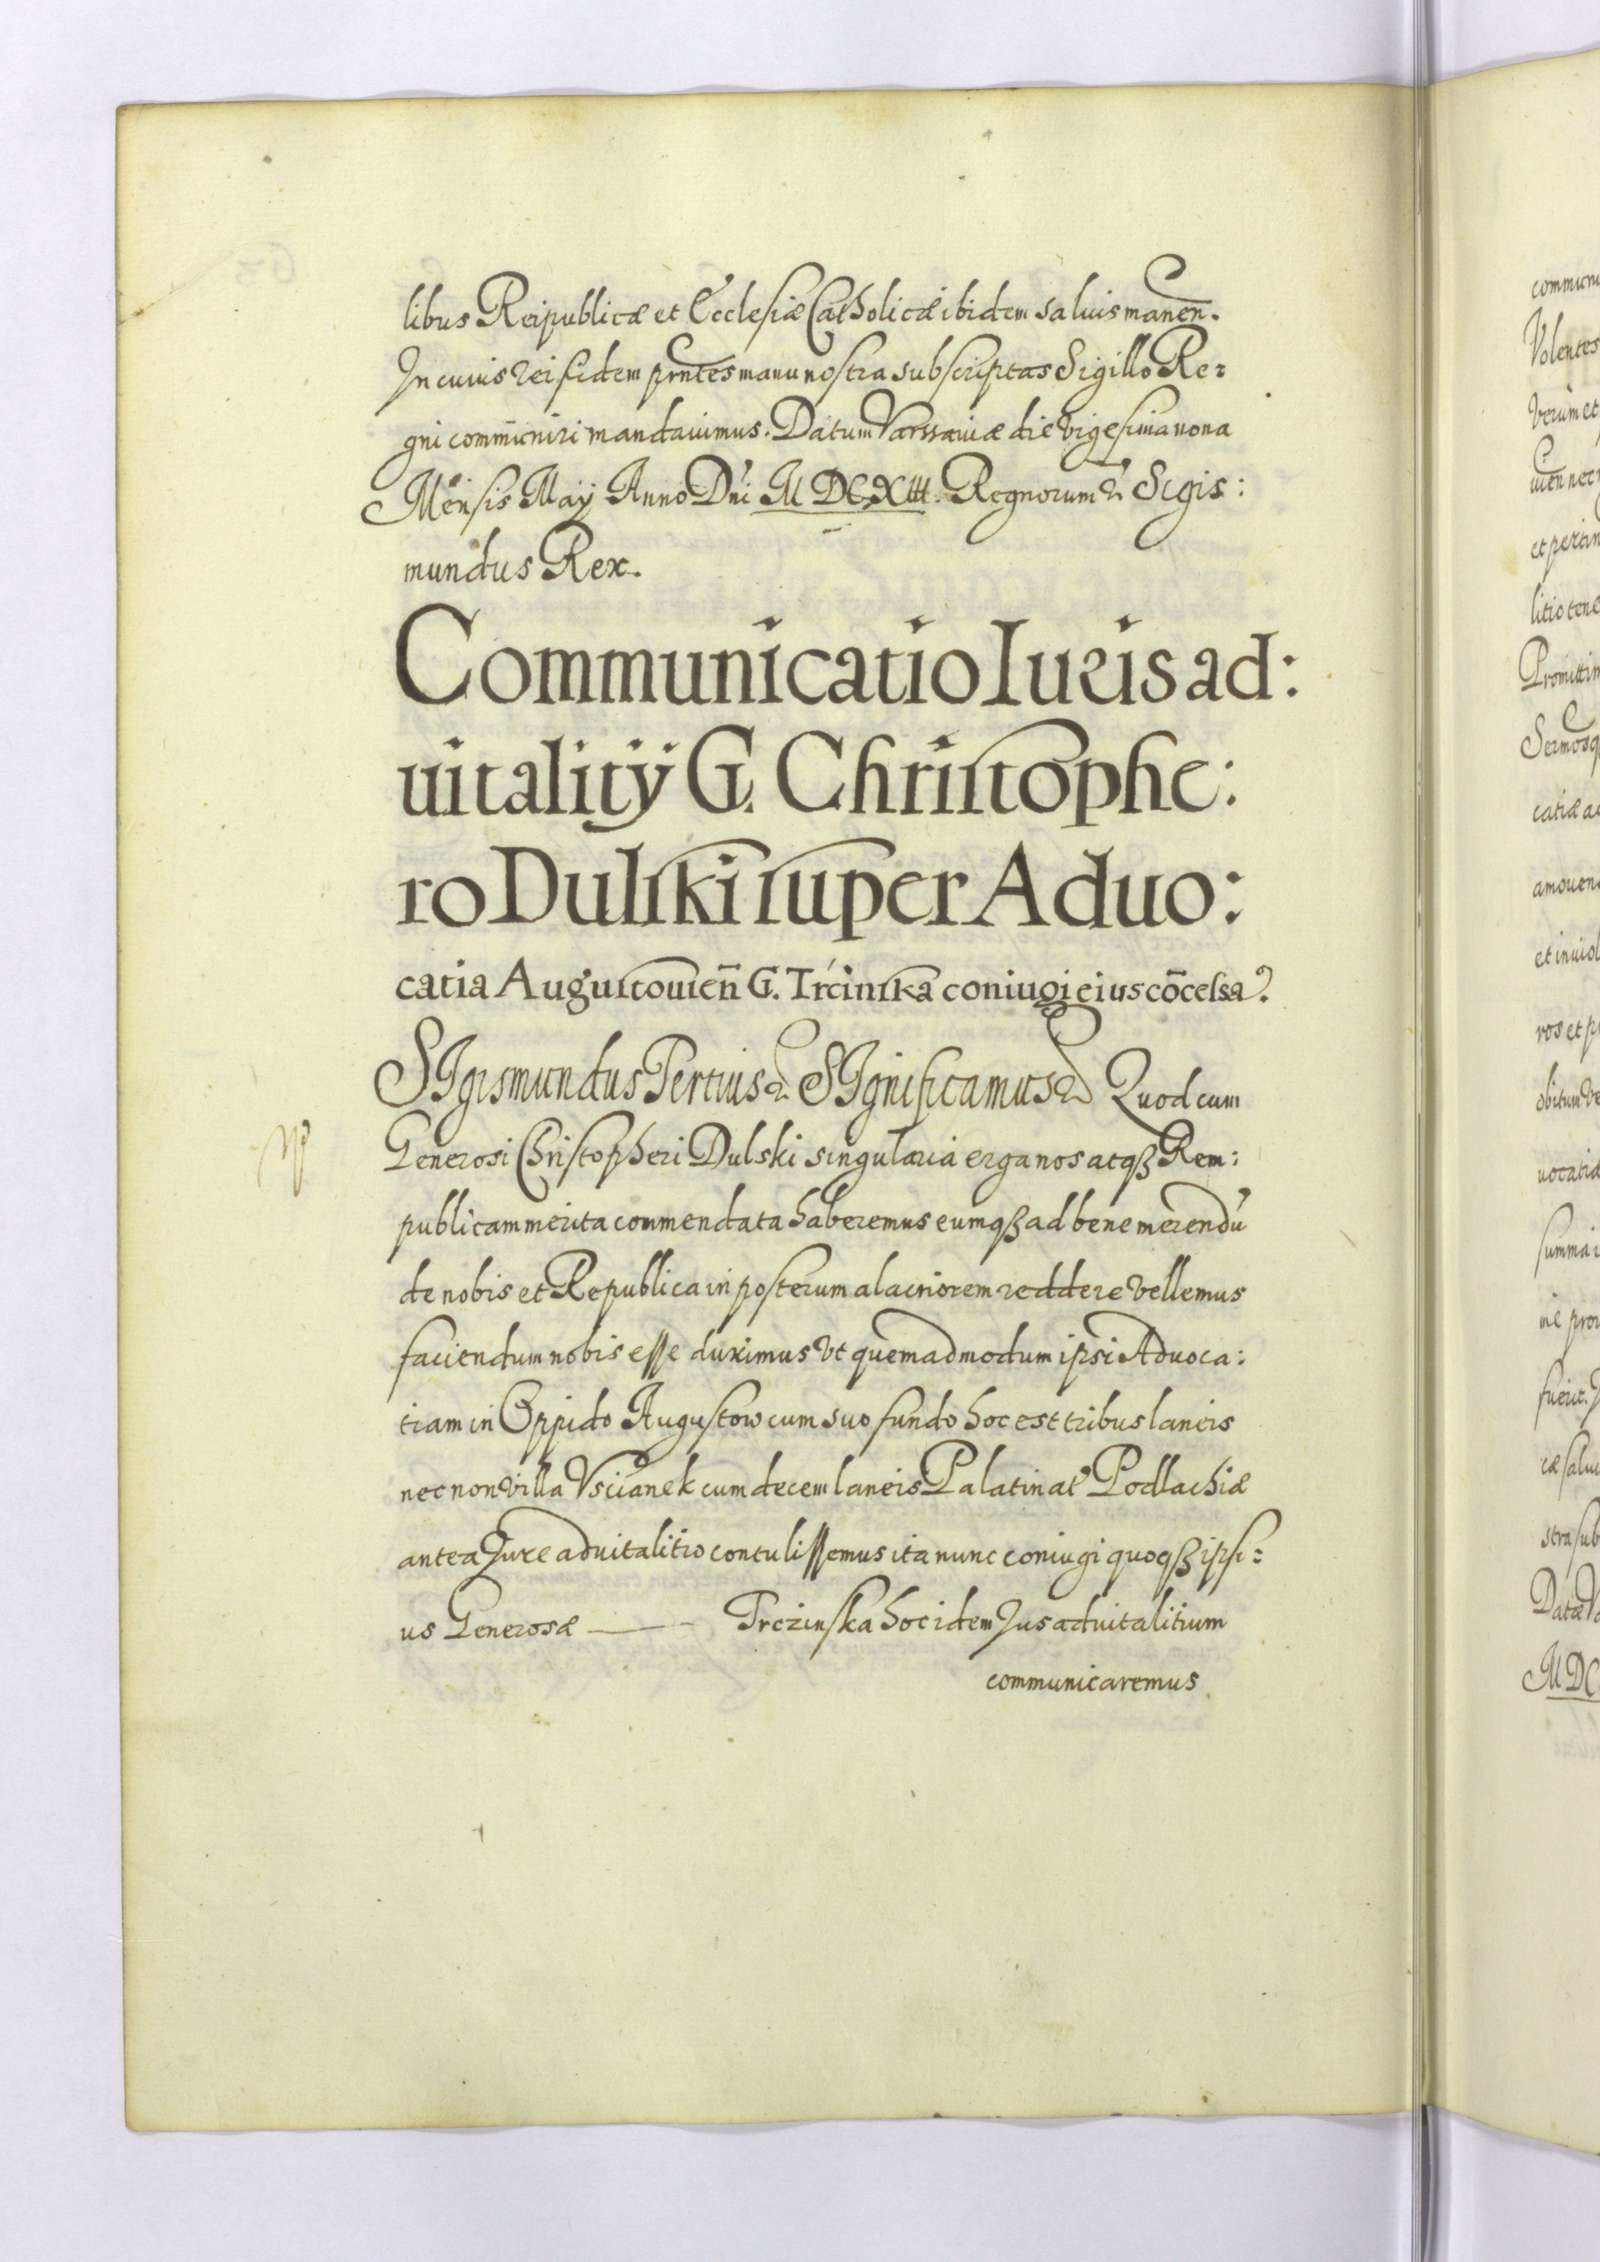 libus Reipublicæ et Ecclesiæ Catholicæ ibidem saluis manen̄.
In cuius rei fidem pn̄tes manu nostra subscriptas Sigillo Re:
gni com̄uniri mandauimus. Datum Varssauiæ die vigesima nona
Mensis May Anno Dn̄i M DC XIII. Regnorum &c Sigis:
mundus Rex.
Communicatio Iuris ad:
uitalitÿ G. Christophe:
ro Dulski super Aduo:
catia Augustouien̄ G. Trćinska coniugi eius cōcessa.
SIgismundus Tertius &c SIgnificamus &c Quod cum
Generosi Christopheri Dulski singularia erga nos atqꝫ Rem:
publicam merita commendata haberemus eumqꝫ ad bene merendū
de nobis et Republica in posterum alacriorem reddere vellemus
faciendum nobis esse duximus vt quemadmodum ipsi Aduoca:
tiam in Oppido Augustow cum suo fundo hoc est tribus laneis
nec non villa Vscianek cum decem laneis Palatinat9 Podlachiæ
antea Jure aduitalitio contulissemus ita nunc coniugi quoqꝫ ipsi:
us Generosæ —— Trczinska hoc idem Jus aduitalitium
communicaremus
communi
Volentes
verum et
uien nec
et pertin
litio tene
Promittim
Sermosq
catiæ ad
amouen
et inuiol
ros et p
obitum ve
uocatia
summa
fuerit.
cæ salu
stra sub
Datæ Va
M DC